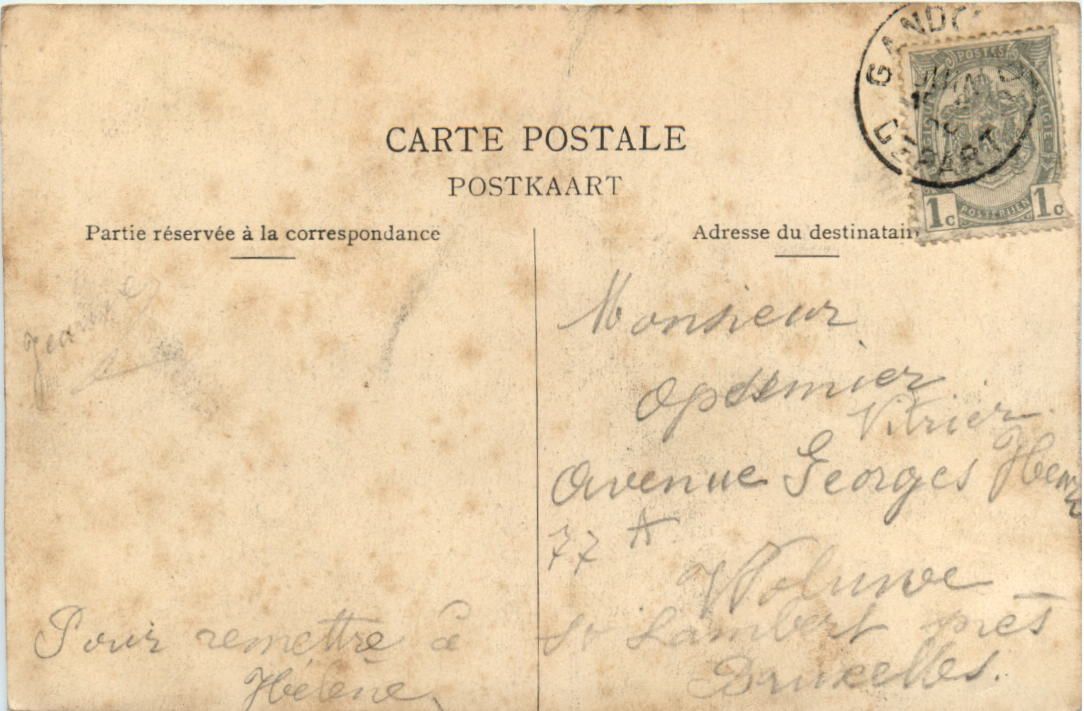 CARTE POSTALE
POSTKAART
Partie réservée à la correspondance
Adresse du destinatair
GAND
DEPART
POSTES
BELGIE
POSTERIJEN
1c 1c
Monsieur
Opdemier
Vitrier
Avenue Georges Henri
77 A
Woluwe
St Lambert près
Bruxelles.
Pour remettre à
Hélène